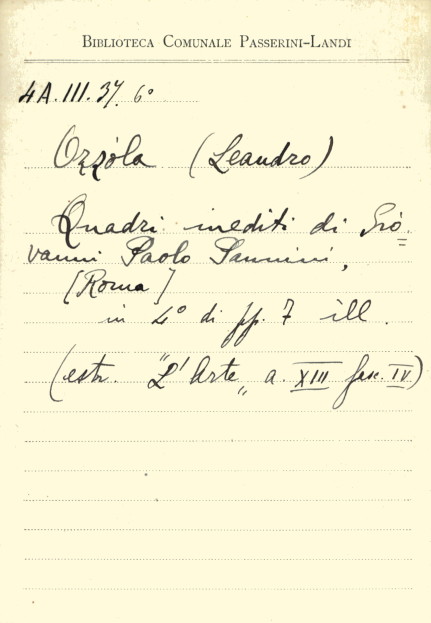 BIBLIOTECA COMUNALE PASSERINI-LANDI
4A.III.37. 6°
Ozzòla (Leandro)
Quadri inediti di Gio=
vanni Paolo Pannini,
[Roma]
in 4° di pp. 7 ill.
(estr. "L'Arte„ a. XIII fasc. IV)